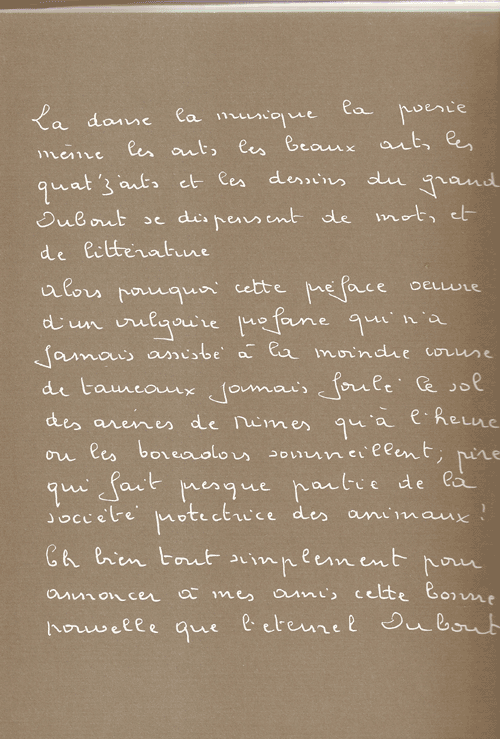 La danse la musique la poesie
même les arts les beaux arts les
quat'z'arts et les dessins du grand
Dubout se dispensent de mots et
de littérature
Alors pourquoi cette préface oeuvre
d'un vulgaire profane qui n'a
jamais assisté à la moindre course
de taureaux jamais foulé le sol
des arènes de Nimes qu'à l'heure
ou les toreadors sommeillent, pire
qui fait presque partie de la
société protectrice des animaux!
Eh bien tout simplement pour
annoncer à mes amis cette bonne
nouvelle que l'eternel Dubout